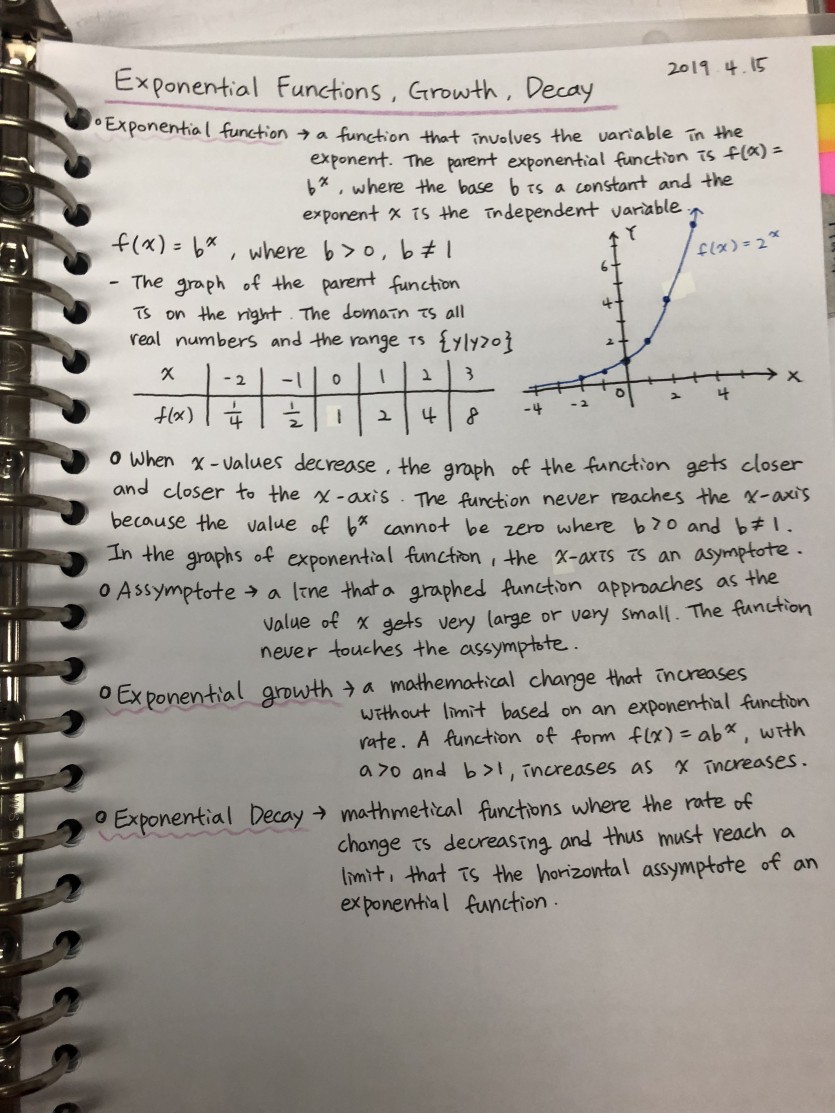 2019.4.15
Exponential Functions, Growth, Decay
Exponential function → a function that involves the variable in the
exponent. The parent exponential function is f(x) =
bˣ, where the base b is a constant and the
exponent x is the independent variable.
f(x) = bˣ, where b > 0, b ≠ 1
- The graph of the parent function
is on the right. The domain is all
real numbers and the range is {y|y>0}
x | -2 | -1 | 0 | 1 | 2 | 3
f(x) | 1/4 | 1/2 | 1 | 2 | 4 | 8
Y
f(x) = 2ˣ
6
4
2
X
-4 -2 0 2 4
When x-values decrease, the graph of the function gets closer
and closer to the x-axis. The function never reaches the x-axis
because the value of bˣ cannot be zero where b>0 and b≠1.
In the graphs of exponential function, the x-axis is an asymptote.
Assymptote → a line that a graphed function approaches as the
value of x gets very large or very small. The function
never touches the assymptote.
Exponential growth → a mathematical change that increases
without limit based on an exponential function
rate. A function of form f(x) = abˣ, with
a>0 and b>1, increases as x increases.
Exponential Decay → mathmetical functions where the rate of
change is decreasing and thus must reach a
limit, that is the horizontal assymptote of an
exponential function.